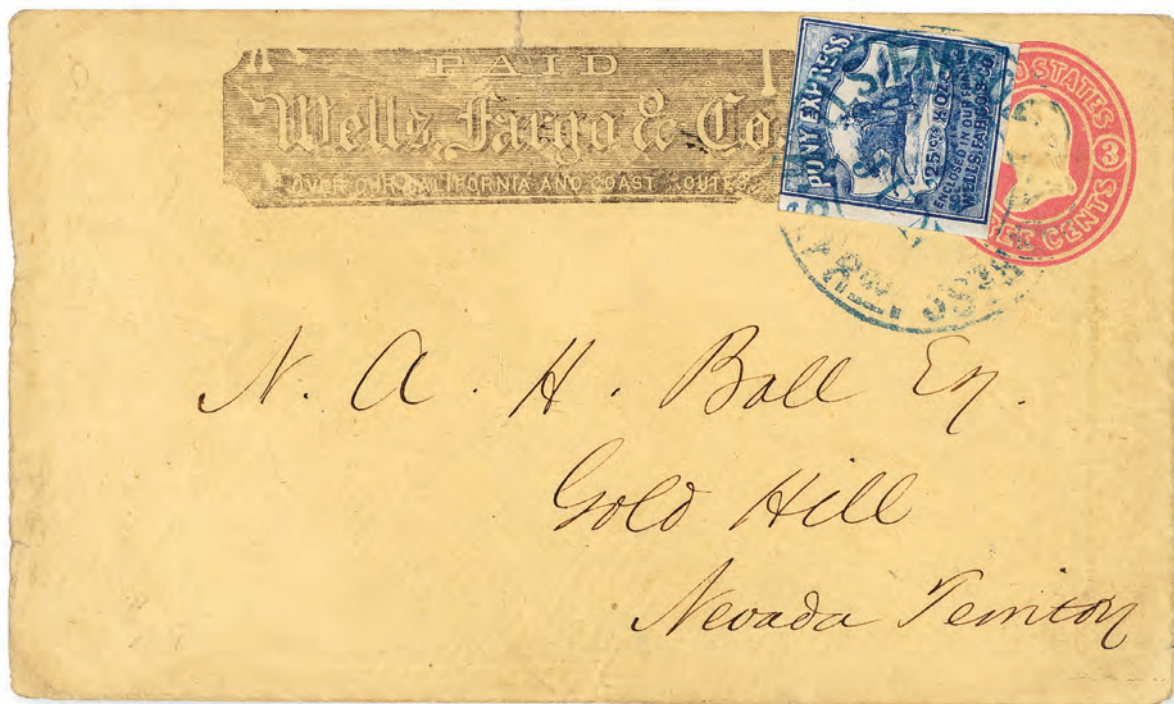 PAID
Wells, Fargo & Co.
OVER OUR CALIFORNIA AND COAST ROUTES
PONY EXPRESS.
25 cts ½ OZ.
ENCLOSED IN OUR FRANKS
WELLS, FARGO & CO.
STATES
3
CENTS
N. A. H. Ball Esq.
Gold Hill
Nevada Territory